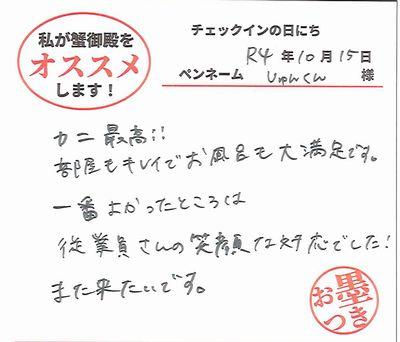 私が蟹御殿を
オススメ
します！
チェックインの日にち
R4 年 10 月 15 日
ペンネーム ひゅんくん 様
カニ最高!!
部屋もキレイでお風呂も大満足です。
一番よかったところは
従業員さんの笑顔な対応でした!
また来たいです。
お墨つき